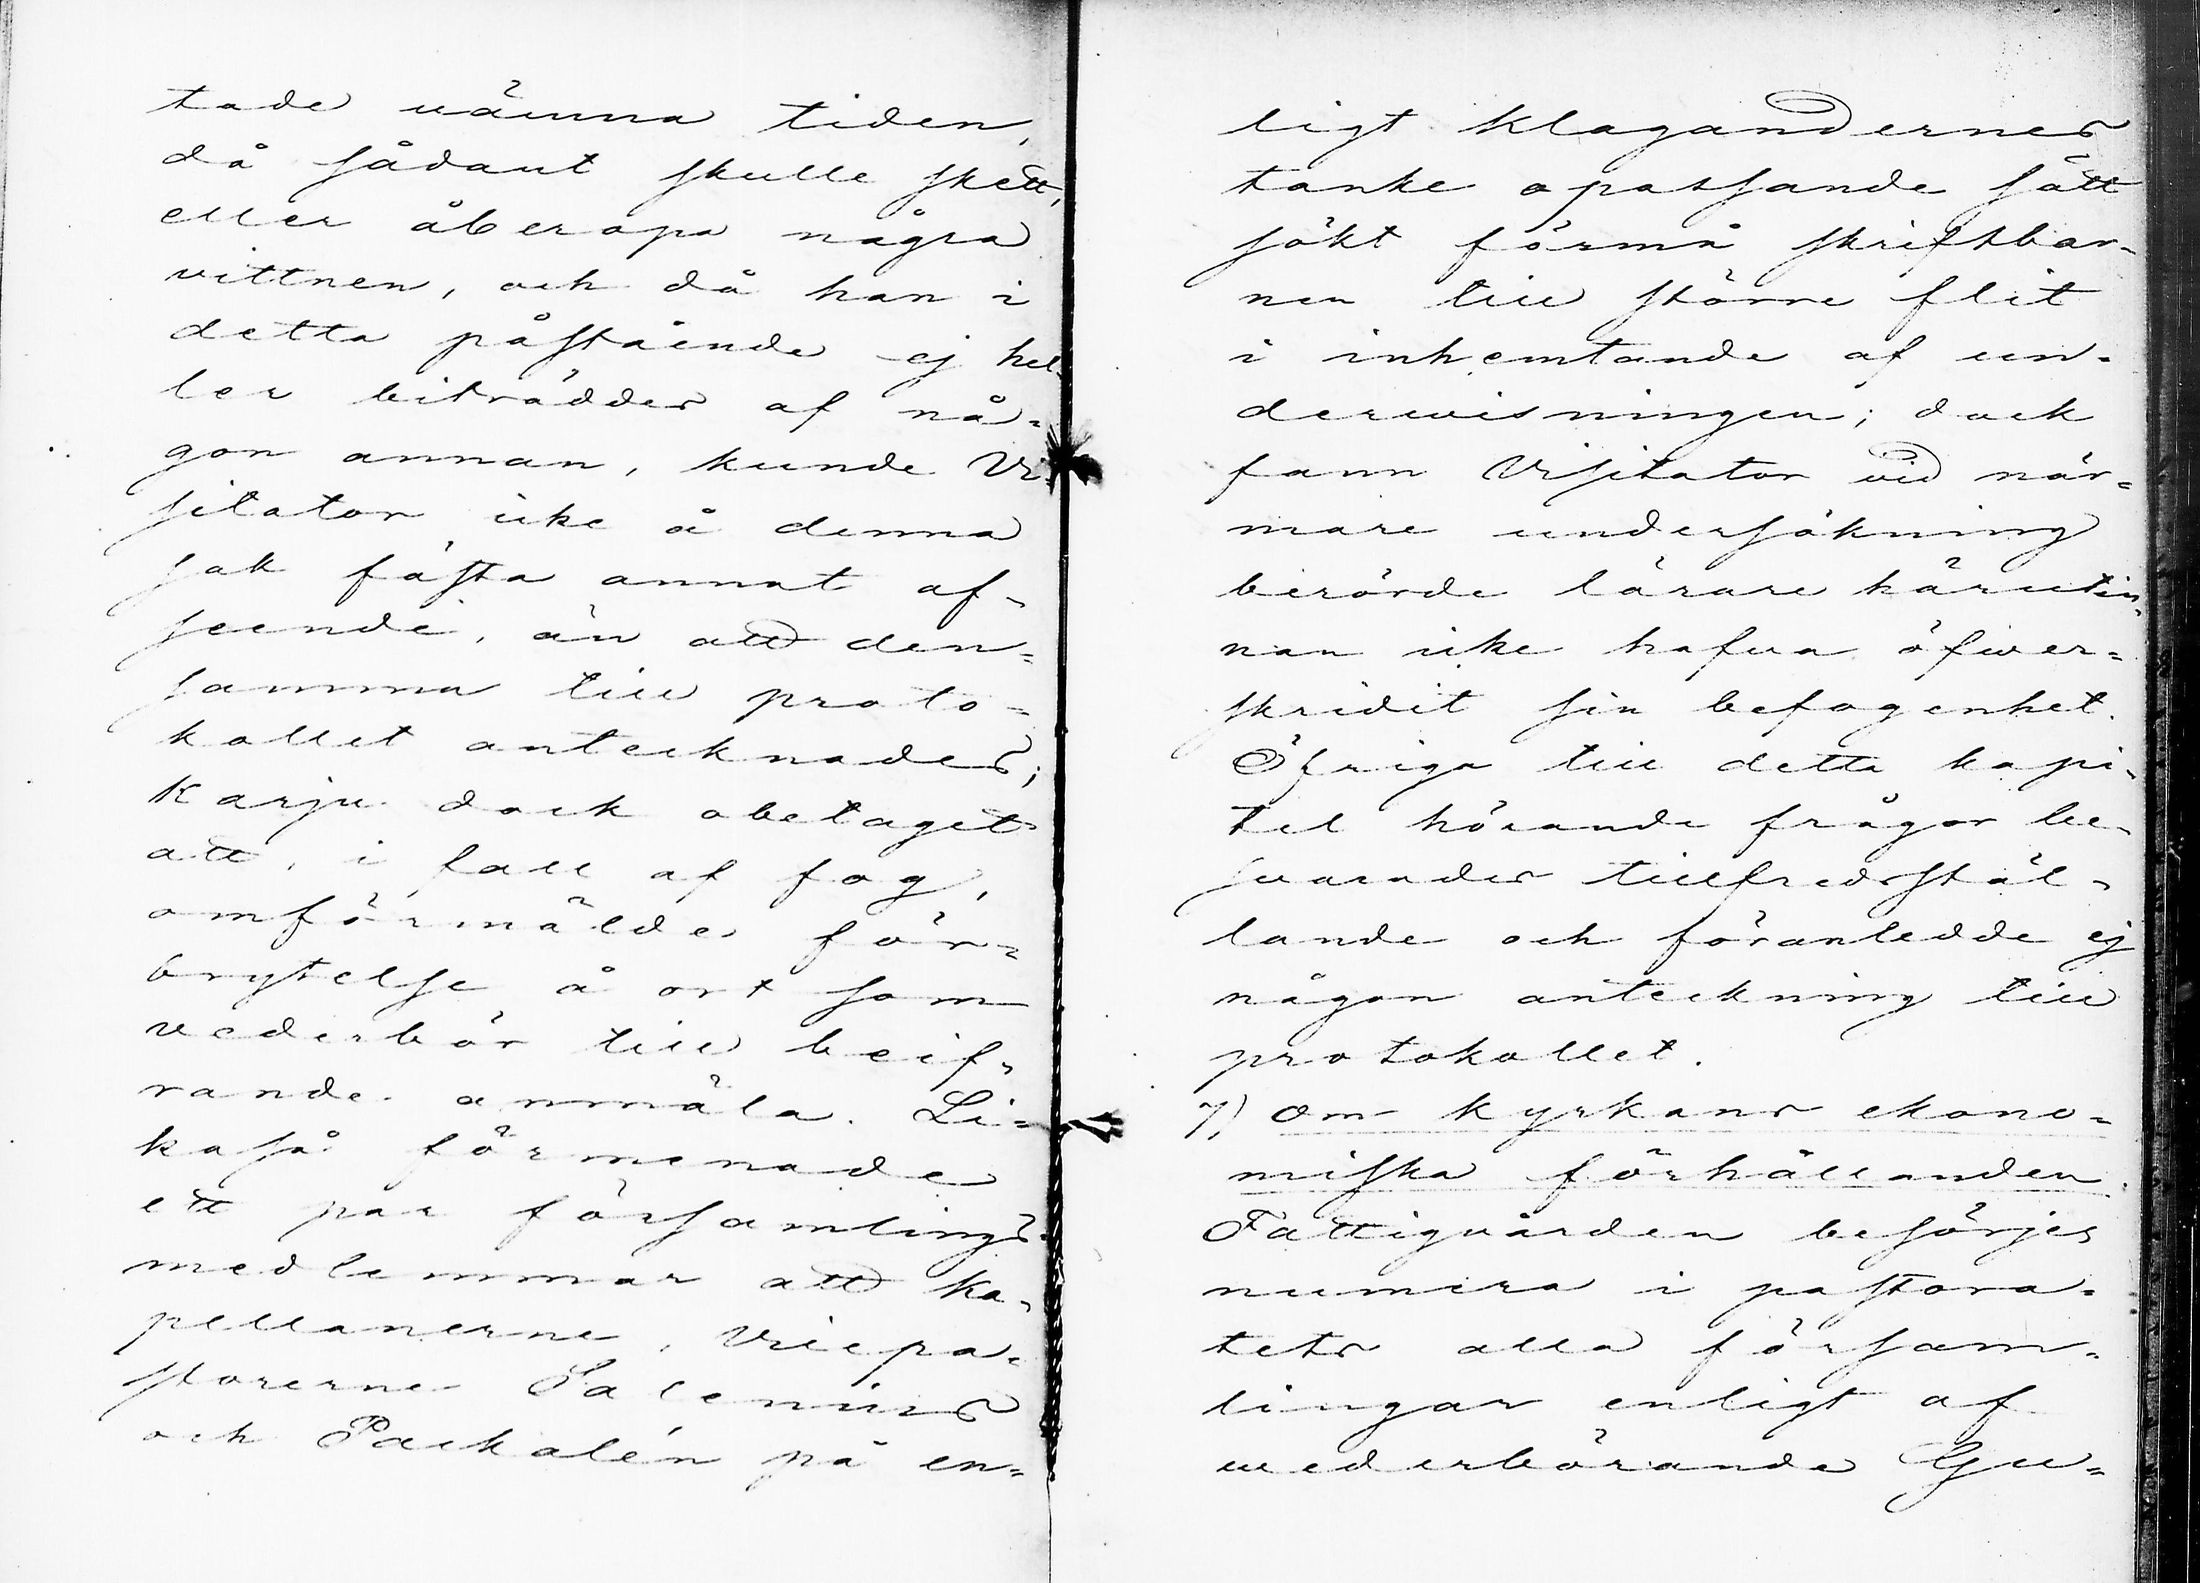 tade nämna tiden,
då sådant skulle skett,
eller åberopa några
vittnen, och då han i
detta påstående ej hel-
ler biträddes af nå-
gon annan, kunde Vi-
sitator icke å denna
sak fästa annat af-
seende, än att den-
samma till proto-
kollet antecknades;
Karju dock obetaget
att, i fall af fog,
omförmälde för-
brytelse å ort som
vederbör till beif-
rande anmäla. Li-
kaså förmenade
ett par församlings-
medlemmar att ka-
pellanerne, Vicepa-
storerne Salenius
och Packalén på en-
ligt klagandernes
tanke opassande sätt
sökt förmå skriftbar-
nen till större flit
i inhemtande af un-
derwisningen; dock
fann Visitator vid när-
mare undersökning
berörde lärare härutin-
nan icke hafva öfwer-
skridit sin befogenhet.
Öfriga till detta kapi-
tel hörande frågor be-
svarades tillfredsstäl-
lande och föranledde ej
någon anteckning till
protokollet.
7) Om kyrkans ekono-
miska förhållanden.
Fattigvården besörjes
numera i pastora-
tets alla försam-
lingar enligt af
wederbörande Gu-